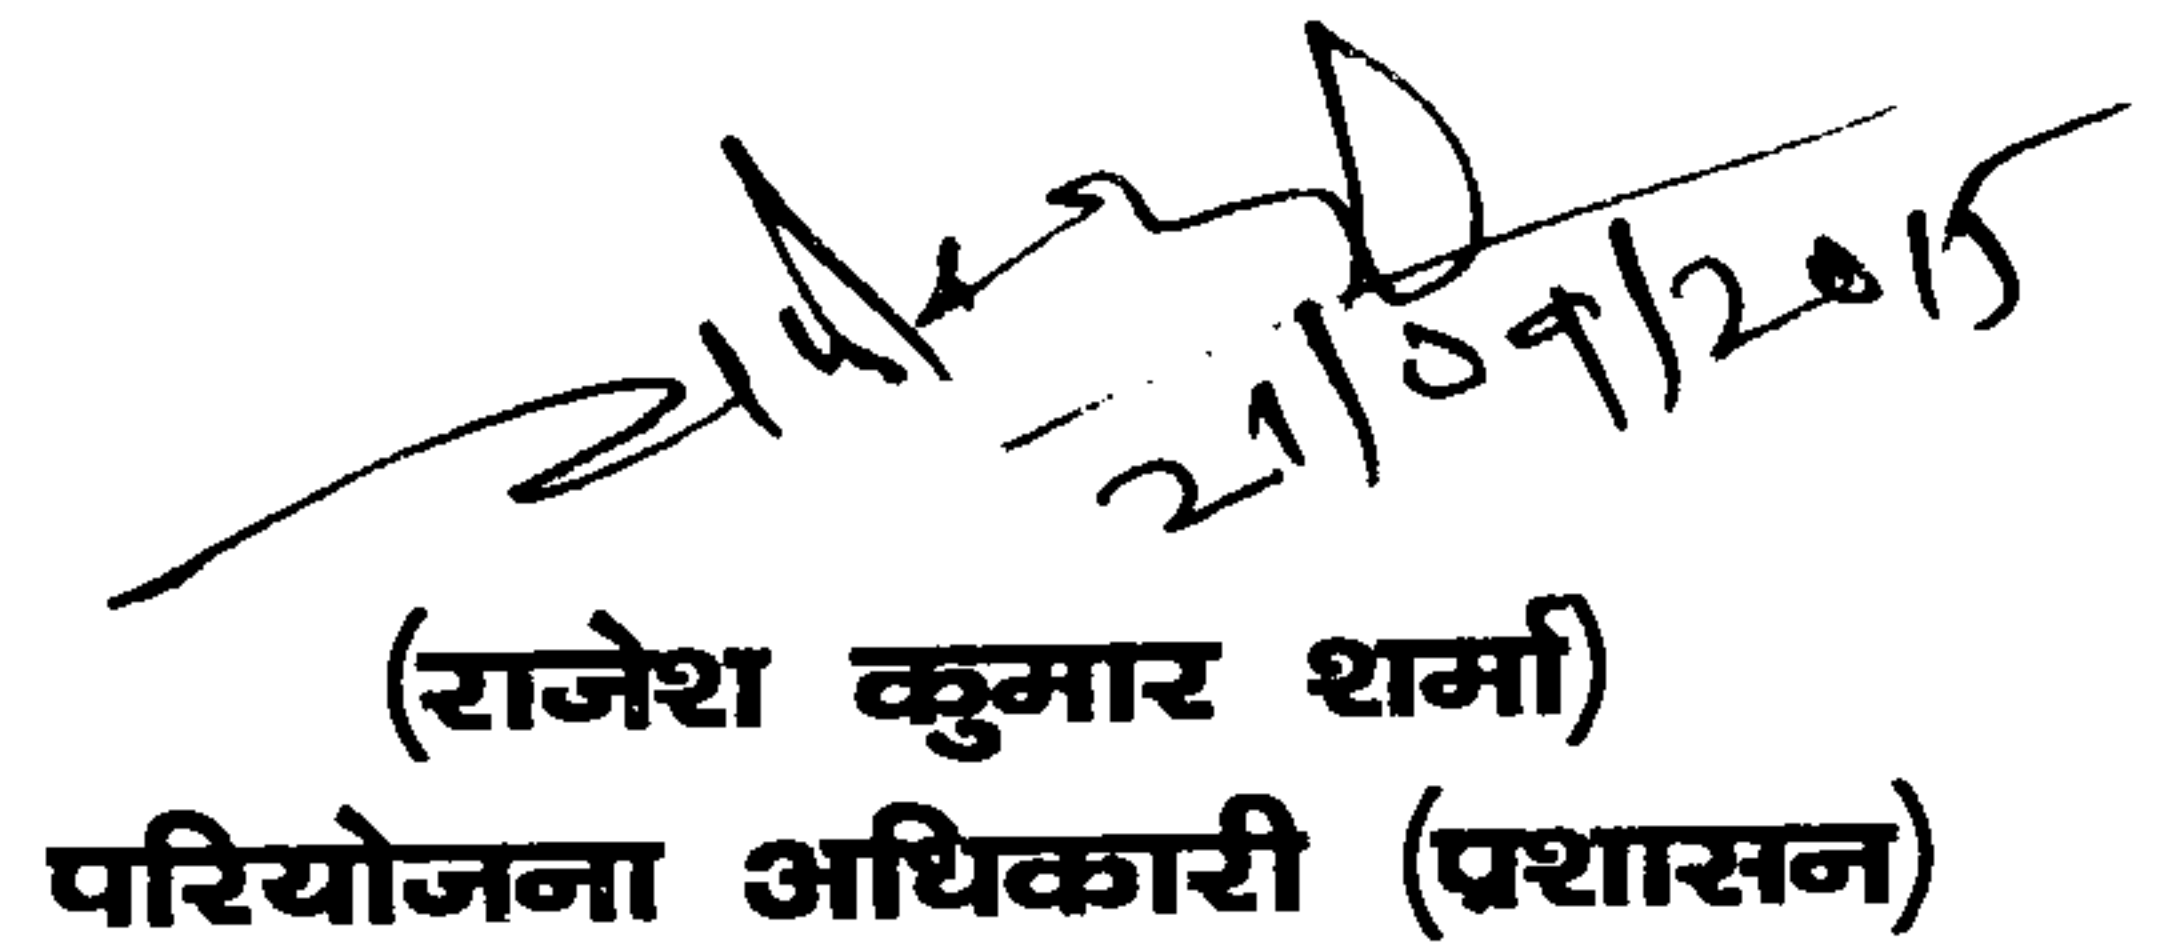 21/09/2015
(राजेश कुमार शर्मा)
परियोजना अधिकारी (प्रशासन)